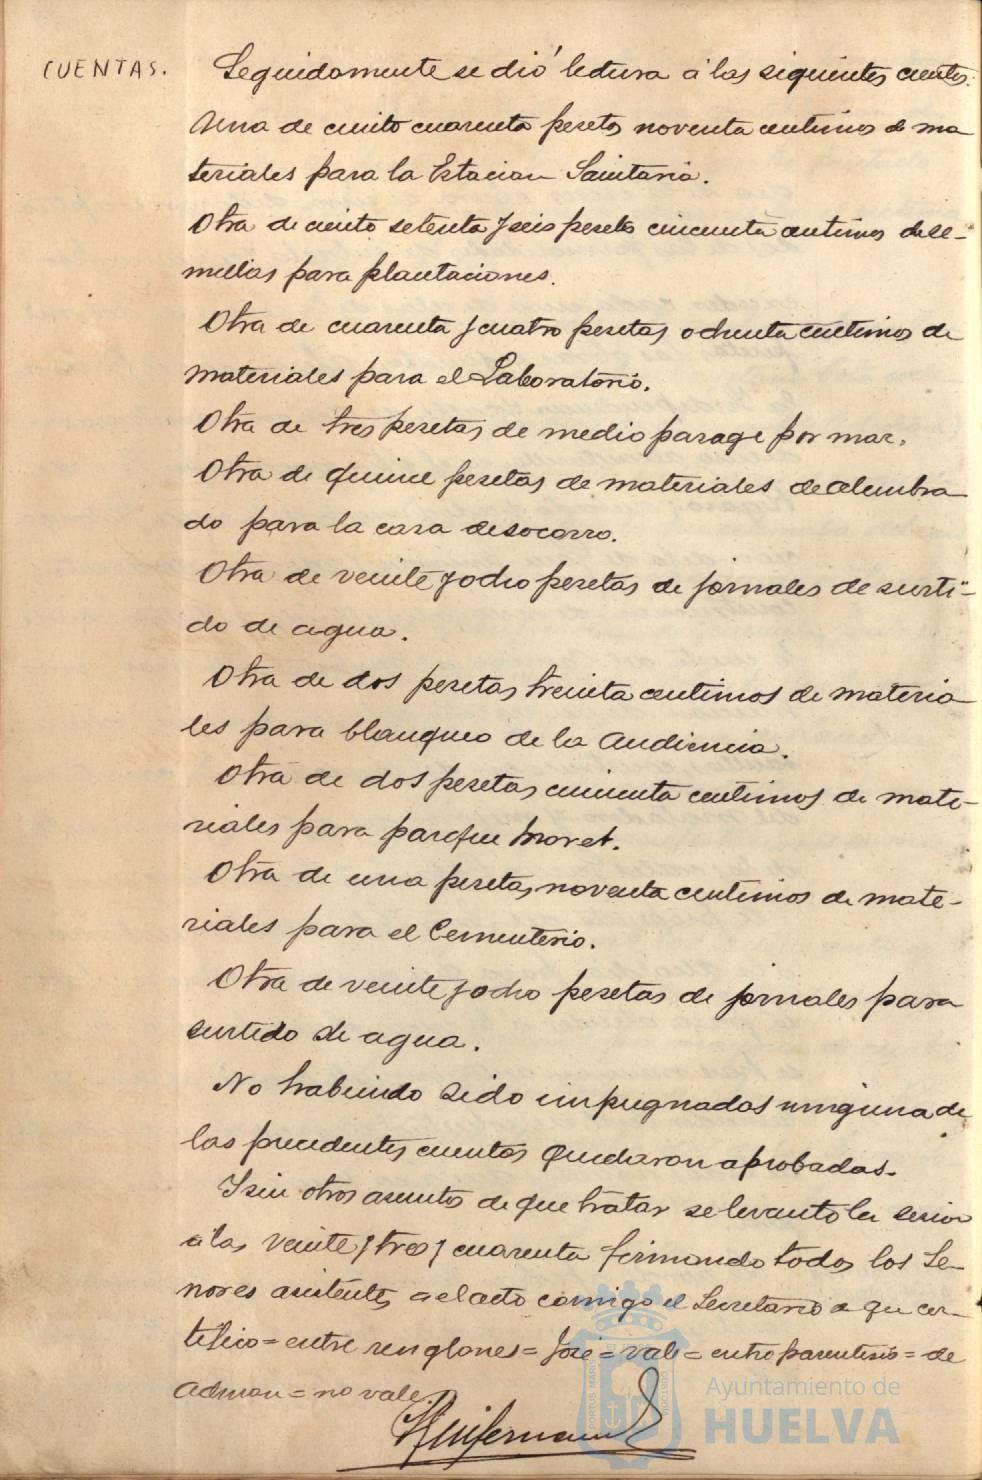 CUENTAS.
Seguidamente se dió lectura a las siguientes cuentas:
Una de ciento cuarenta pesetas noventa centimos de ma
teriales para la Estacion Sanitaria.
Otra de ciento setenta y seis pesetas cincuenta centimos de se-
millas para plantaciones.
Otra de cuarenta y cuatro pesetas ochenta centimos de
materiales para el Laboratorio.
Otra de tres pesetas de medio parage por mar.
Otra de quince pesetas de materiales de alumbra
do para la casa de socorro.
Otra de veinte y ocho pesetas de jornales de surti-
do de agua.
Otra de dos pesetas treinta centimos de materia
les para blanqueo de la Audiencia.
Otra de dos pesetas cincuenta centimos de mate-
riales para parque Moret.
Otra de una pesetas noventa centimos de mate-
riales para el Cementerio.
Otra de veinte y ocho pesetas de jornales para
surtido de agua.
No habiendo sido impugnadas ninguna de
las precedentes cuentas quedaron aprobadas.
Y sin otros asuntos de que tratar se levanto la sesion
a las veinte y tres y cuarenta firmando todos los Se-
nores asistentes a el acto comigo el Secretario de que cer-
tifico = entre renglones = José = vale = entre parentesis = de
Admon = no vale
PORTUS MARIS
CUSTODIA
Ayuntamiento de
HUELVA